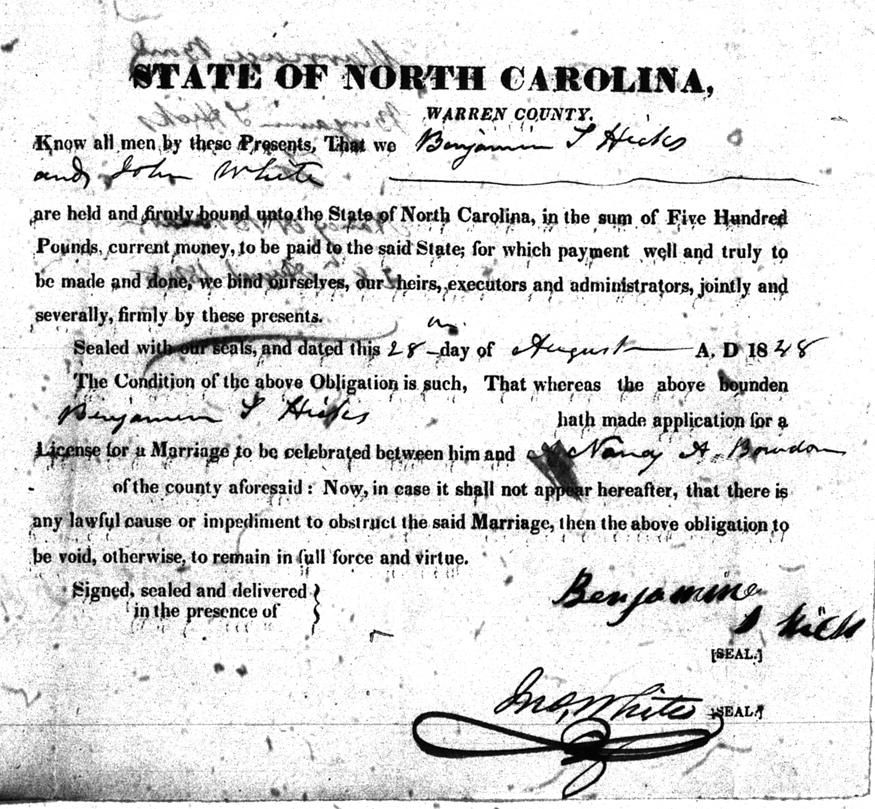 STATE OF NORTH CAROLINA,
WARREN COUNTY.
Know all men by these Presents, That we Benjamin S Hicks
and John White
are held and firmly bound unto the State of North Carolina, in the sum of Five Hundred
Pounds, current money, to be paid to the said State; for which payment well and truly to
be made and done, we bind ourselves, our heirs, executors and administrators, jointly and
severally, firmly by these presents.
Sealed with our seals, and dated this 28 day of August A. D 1848
The Condition of the above Obligation is such, That whereas the above bounden
Benjamin S Hicks hath made application for a
License for a Marriage to be celebrated between him and Nancy A. Bowdon
of the county aforesaid: Now, in case it shall not appear hereafter, that there is
any lawful cause or impediment to obstruct the said Marriage, then the above obligation to
be void, otherwise, to remain in full force and virtue.
Signed, sealed and delivered
in the presence of
Benjamine
S Hicks
[SEAL.]
Jno, White [SEAL.]